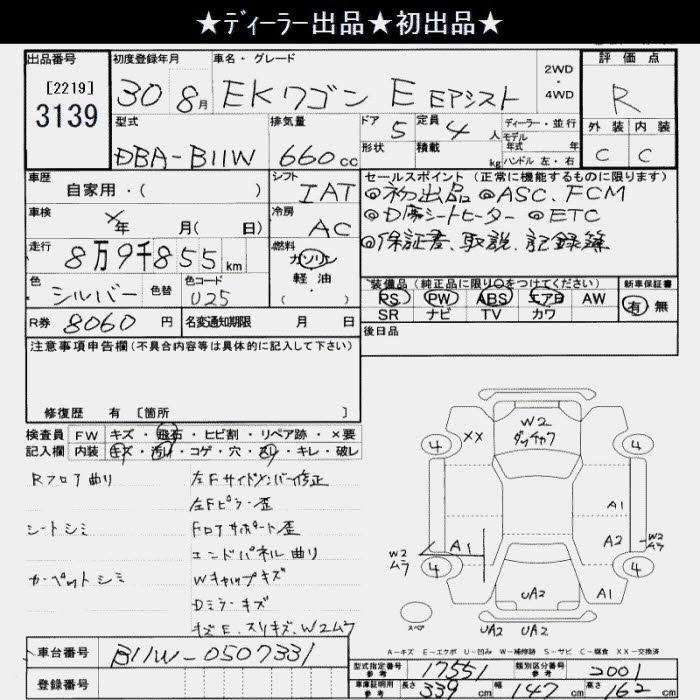 ★ディーラー出品★初出品★
出品番号 初度登録年月 車名・グレード 2WD ・ 4WD 評価点
[2219]
3139 30 8月 EKワゴン E Eアシスト R
型式 排気量 ドア 5 定員 4人 ディーラー・並行 外装 内装
モデル年式 年
DBA-B11W 660cc 形状 積載 kg ハンドル 左・右 C C
車歴 自家用・( ) シフト IAT セールスポイント (正常に機能するものに限ります)
◎初出品 ◎ASC.FCM
車検 ×年 月( 日) 冷房 AC ◎D席シートヒーター ◎ETC
走行 8万9千855km 燃料 ガソリン 軽油 ・( ) ◎保証書、取説、記録簿
色 シルバー 色替 色コード U25 装備品 (純正品に限り○をつけてください) 新車保証書
PS PW ABS エアB AW 有 無
R券 8060円 名変通知期限 月 日 SR ナビ TV カワ
注意事項申告欄 (不具合内容等は具体的に記入して下さい) 後日品
修復歴 有 [箇所 ]
検査員 FW キズ・飛石・ヒビ割・リペア跡・×要
記入欄 内装 キズ・汚れ・コゲ・穴・スレ・キレ・破レ
Rフロア曲り 左Fサイドメンバー修正
左Fピラー歪
シートシミ Fロアサポート歪
エンドパネル曲り
カーペットシミ Wキャップキズ
Dミラーキズ
キズE.スリキズ、W2ムラ
W2
XX
4 4
A1
W2 ムラ A1 A2 W2 ムラ
4 4
UA2 A1
スペア
UA2 UA2
A-キズ E-エクボ U-凹み W-補修跡 S-サビ C-腐食 XX-交換済
車台番号 B11W-0507331
型式指定番号 参考 17551 類別区分番号 参考 2001
登録番号 車庫証明用 参考 長さ 339cm 幅 147cm 高さ 162cm